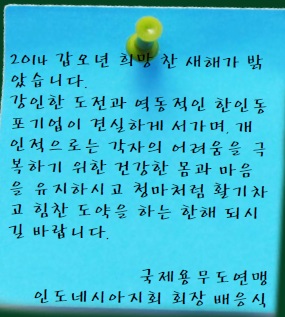 2014 갑오년 희망 찬 새해가 밝
았습니다.
강인한 도전과 역동적인 한인동
포기업이 견실하게 서가며, 개
인적으로는 각자의 어려움을 극
복하기 위한 건강한 몸과 마음
을 유지하시고 청마처럼 활기차
고 힘찬 도약을 하는 한해 되시
길 바랍니다.
국제용무도연맹
인도네시아지회 회장 배응식